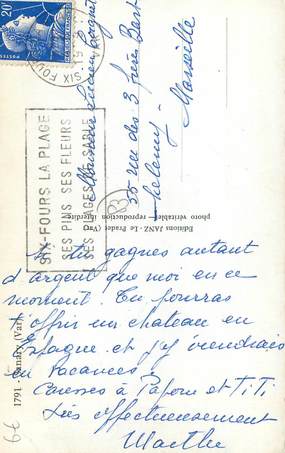 20F
SIX FOURS
SIX-FOURS LA PLAGE
SES PINS SES FLEURS
SES PLAGES DE SABLE
Monsieur Lucien
55 rue des 3 frères Bart
Marseille
Editions JANZ - Le Pradet (Var)
photo véritable — reproduction interdite
1791 - Sanary (Var)
Si tu gagnes autant
d'argent que moi en ce
moment. Tu pourras
t'offrir un chateau en
Espagne et j'y viendrais
en vacances.
Caresses à Papom et TiTi
Très affectueusement
Marthe
6€